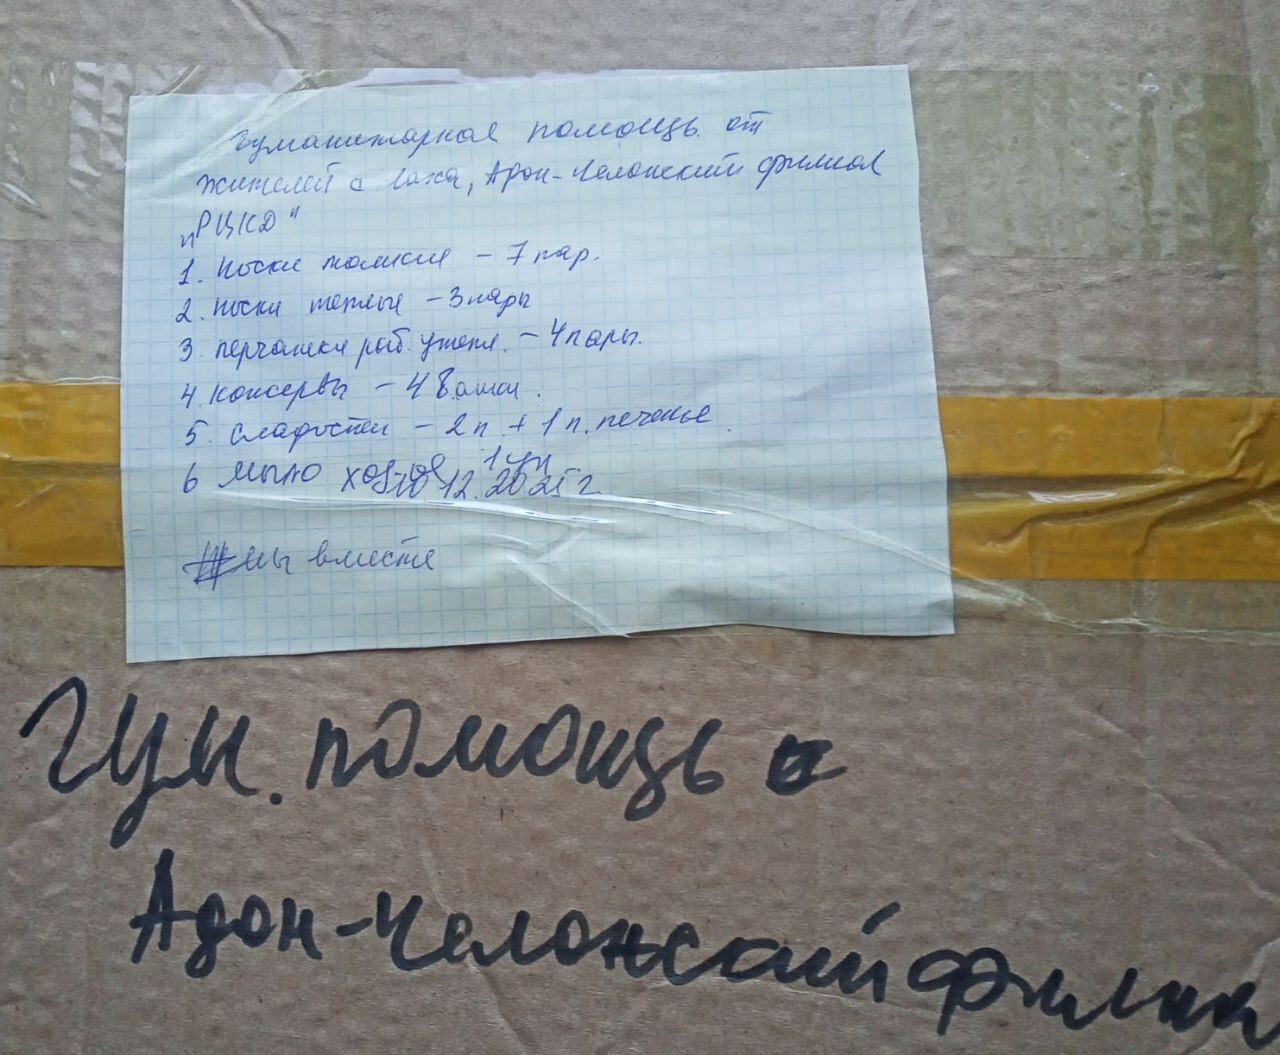 Гуманитарная помощь от
жителей с Гаха, Адон-Челонский филиал
"РЦКД"
1. Носки тонкие - 7 пар.
2. носки теплые - 3 пары
3. перчатки раб. утепл. - 4 пары.
4. консервы - 4 банки.
5. сладости - 2 п. + 1 п. печенье.
6 мыло хоз-ое 1 уп
10.12.2025 г.
#мы вместе
Гум. помощь с
Адон-Челонский филиа